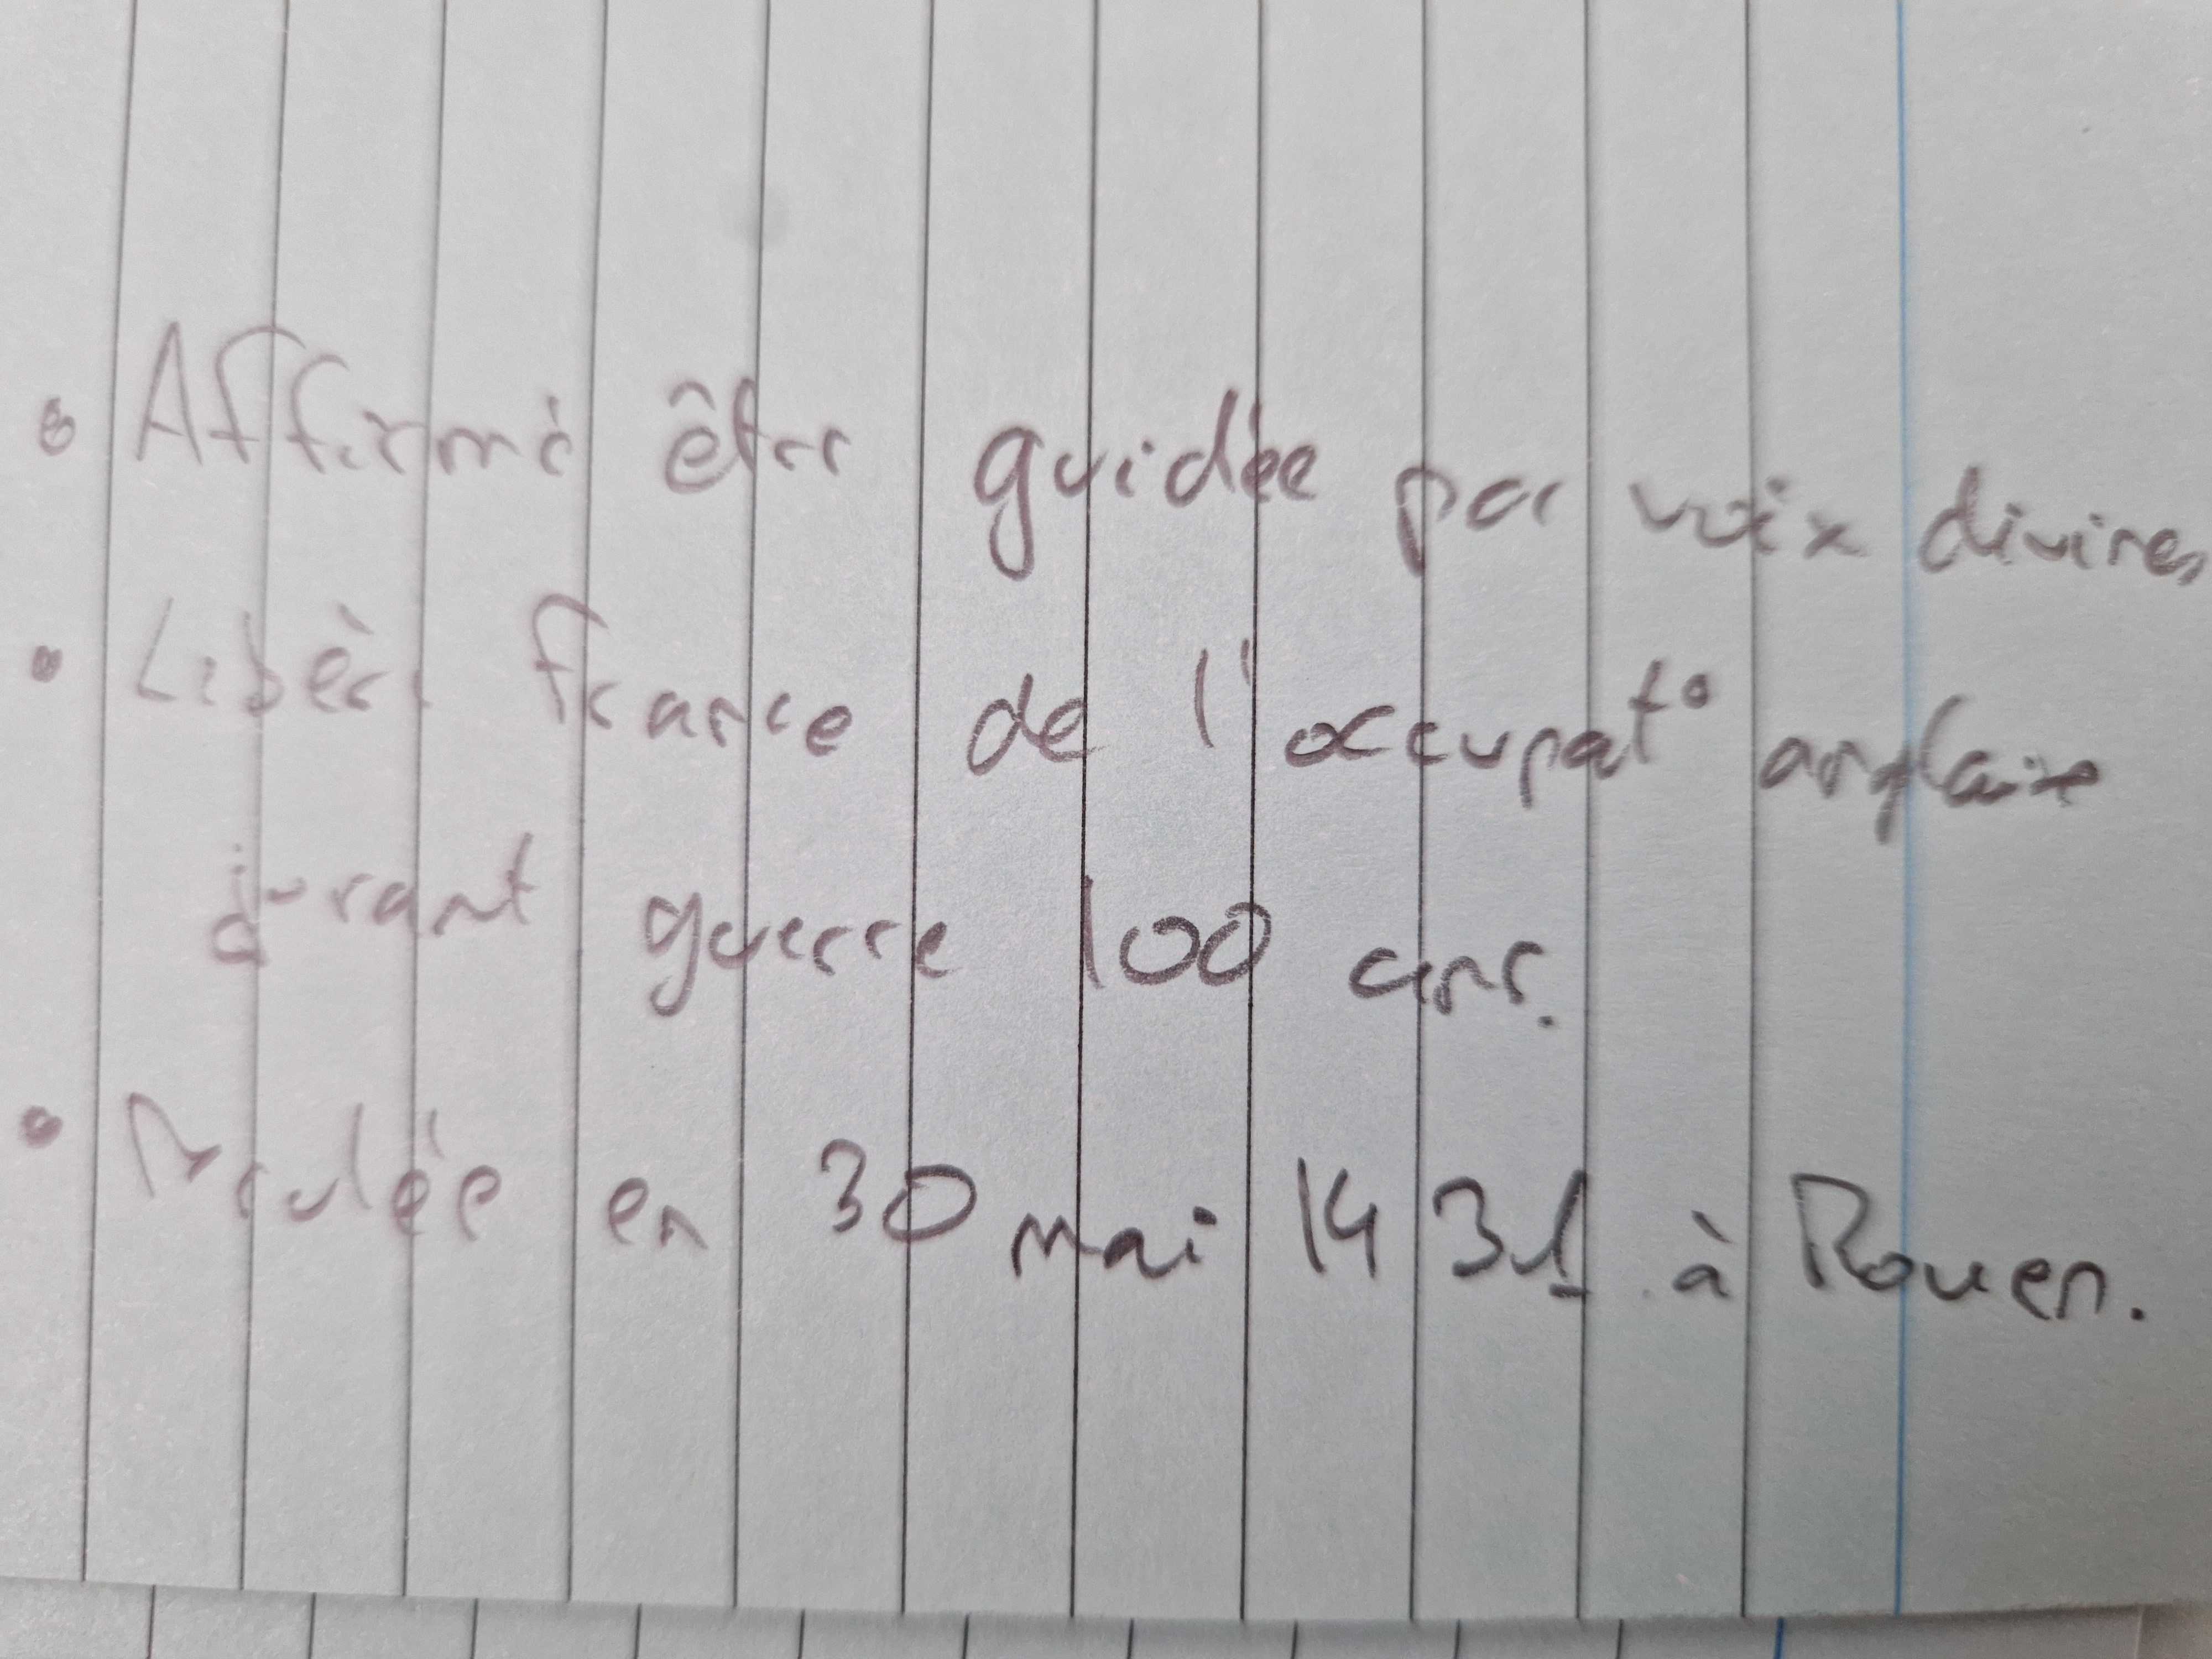 • Affirmé être guidée par voix divines
• Libère France de l'occupat° anglaise
durant guerre 100 ans.
• Brulée en 30 mai 1431 à Rouen.